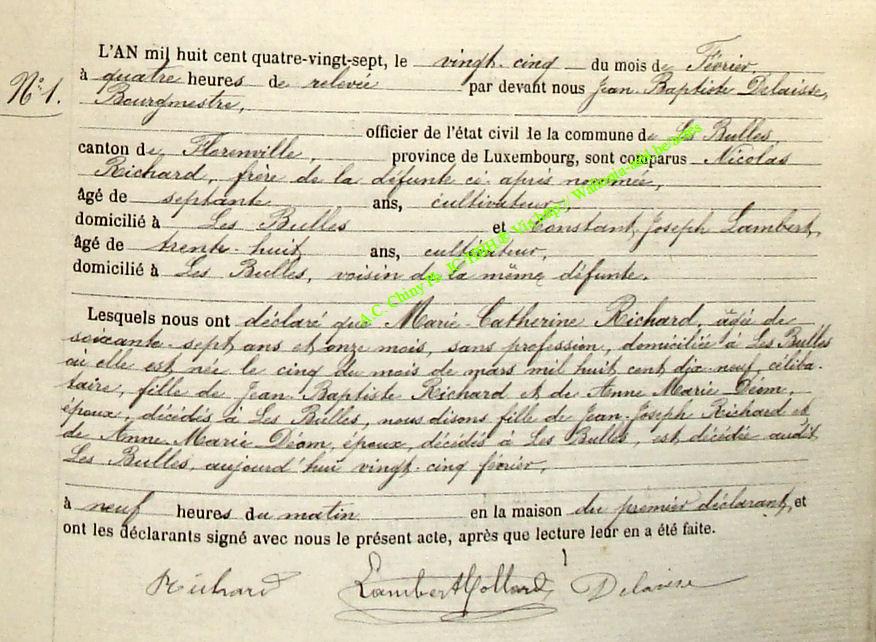 L'AN mil huit cent quatre-vingt-sept, le vingt-cinq du mois de Février,
à quatre heures de relevée par devant nous Jean-Baptiste Delaisse,
N° 1.
Bourgmestre,
officier de l'état civil de la commune de Les Bulles
canton de Florenville, province de Luxembourg, sont comparus Nicolas
Richard, frère de la défunte ci après nommée,
âgé de septante ans, cultivateur
domicilié à Les Bulles et Constant Joseph Lambert,
âgé de trente-huit ans, cultivateur,
domicilié à Les Bulles, voisin de la même défunte.
Lesquels nous ont déclaré que Marie-Catherine Richard, âgée de
soixante-sept ans et onze mois, sans profession, domiciliée à Les Bulles
où elle est née le cinq du mois de mars mil huit cent dix-neuf, céliba-
taire, fille de Jean-Baptiste Richard et de Anne Marie Déom,
époux, décédés à Les Bulles, nous disons fille de Jean-Joseph Richard et
de Anne-Marie Déom, époux, décédés à Les Bulles, est décédée audit
Les Bulles, aujourd'hui vingt-cinq février,
à neuf heures du matin en la maison du premier déclarant, et
ont les déclarants signé avec nous le présent acte, après que lecture leur en a été faite.
Richard Lambert Hollard Delaisse
A.C. Chiny